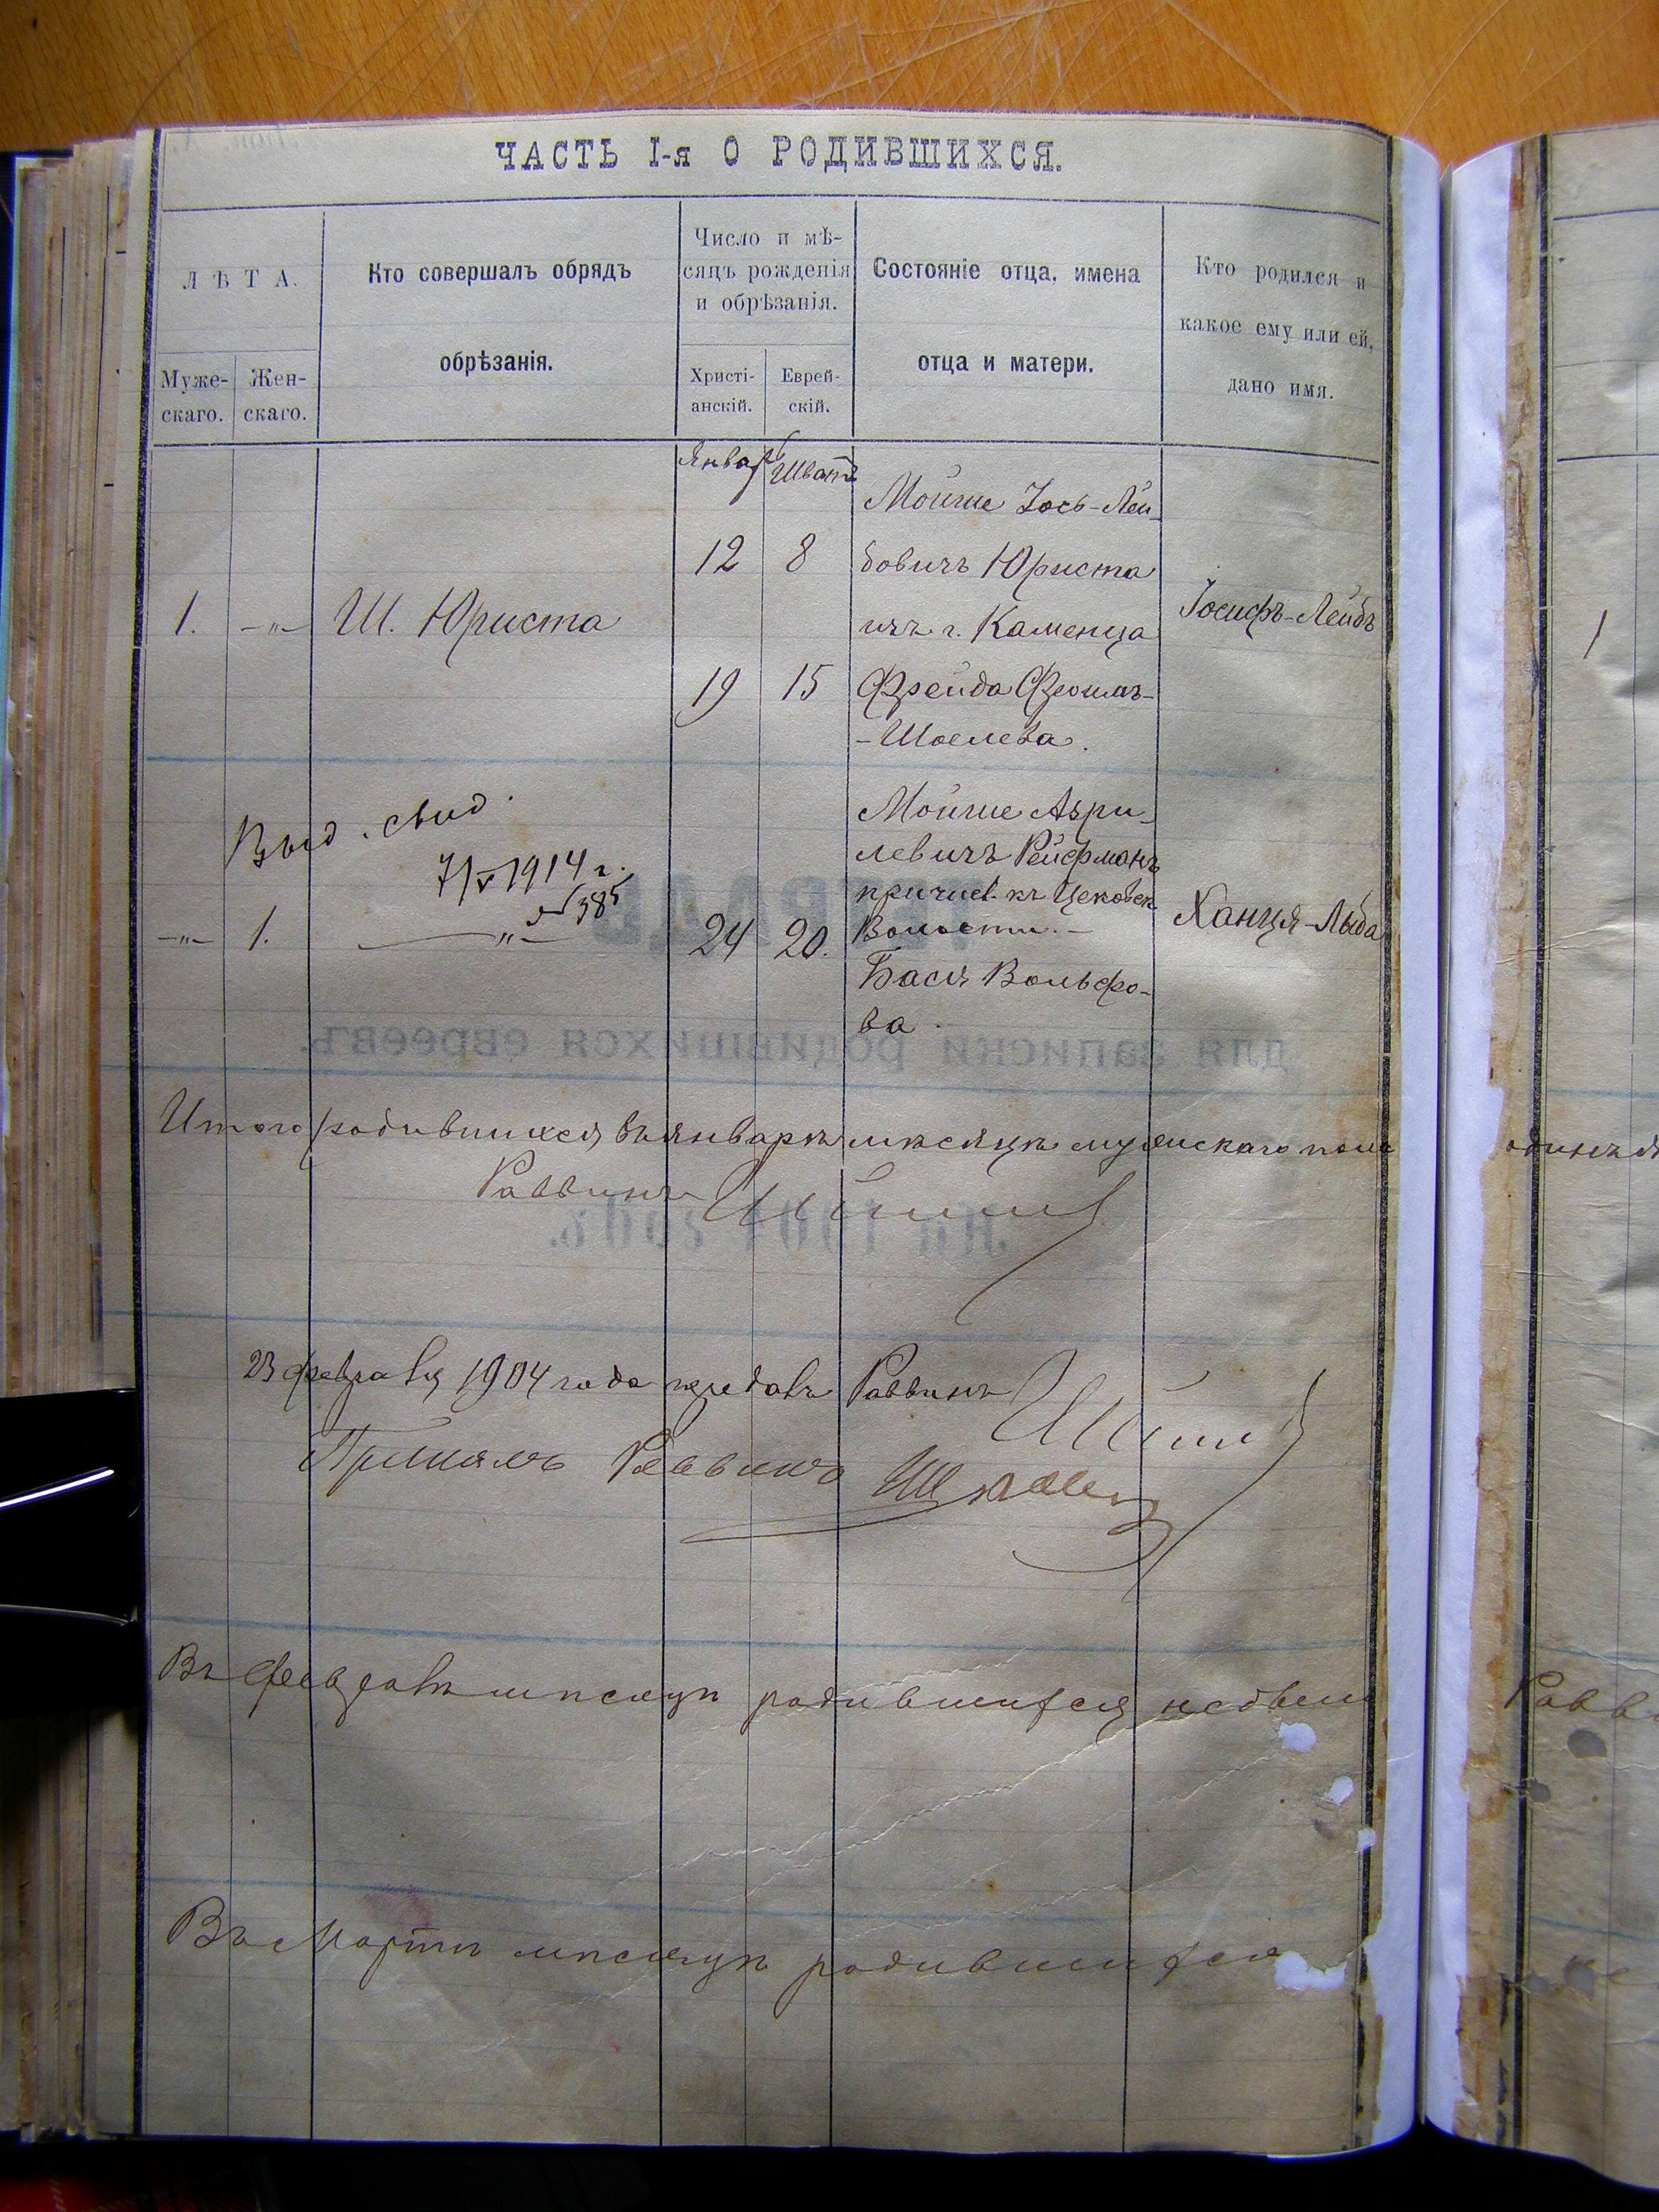 ЧАСТЬ I-я О РОДИВШИХСЯ.
ЛѢТА.
Муже-
скаго.
Жен-
скаго.
Кто совершалъ обрядъ
обрѣзанія.
Число и мѣ-
сяцъ рожденія
и обрѣзанія.
Христі-
анскій.
Еврей-
скій.
Состояніе отца, имена
отца и матери.
Кто родился и
какое ему или ей,
дано имя.
Январь Шватъ
1. -"- Ш. Юриста
12 8
19 15
Мойше Іось-Лей-
бовичъ Юриста
изъ г. Каменца
Фрейда Фроимъ-
-Шоелева.
Іосифъ-Лейбъ
1
Выд. свид.
7/V 1914 г.
№385
-"- 1. -"- 24 20.
Мойше Азри-
левичъ Рейфманъ
причисл. къ Цековск
Волости.-
Бася Вольфо-
ва.
Ханця-Лыба
для записки родившихся евреевъ.
На 1904 годъ.
Итого родившихся въ январѣ мѣсяцѣ мужскаго пола одинъ
Раввинъ
23 февраля 1904 года передалъ Раввинъ
Принялъ Раввинъ
Въ февралѣ мѣсяцѣ родившихся не было
Равви
Въ Мартѣ мѣсяцѣ родившихся не